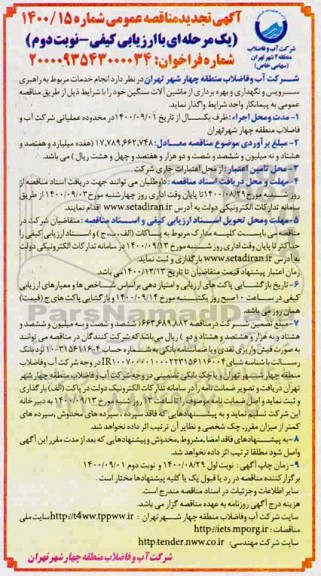 آگهی تجدید مناقصه عمومی شماره ۱۴۰۰/۱۵
(یک مرحله ای با ارزیابی کیفی-نوبت دوم)
شماره فراخوان: ۲۰۰۰۰۹۳۵۴۳۰۰۰۰۳۴
شرکت آب و فاضلاب
منطقه ۴ شهر تهران
(سهامی خاص)
شرکت آب وفاضلاب منطقه چهار شهر تهران در نظر دارد انجام خدمات مربوط به راهبری
سرویس و نگهداری و بهره برداری از ماشین آلات سنگین خود را با شرایط ذیل از طریق مناقصه
عمومی به پیمانکار واجد شرایط واگذار نماید.
۱-مدت ومحل اجراء: ظرف یکسال از تاریخ ۱۴۰۰/۰۹/۰۱ در محدوده عملیاتی شرکت آب و
فاضلاب منطقه چهار شهر تهران
۲-مبلغ برآوردی موضوع مناقصه معادل: ۱۷,۷۸۹,۶۶۲,۷۴۸ (هفده میلیارد و هفتصد و
هشتاد و نه میلیون و ششصد و شصت و دو هزار و هفتصد و چهل و هشت ریال) می باشد.
۳-محل تامین اعتبار: از محل اعتبارات جاری شرکت
۴-مهلت و محل دریافت اسناد مناقصه: داوطلبان می توانند جهت دریافت اسناد مناقصه از
روز شنبه مورخ ۱۴۰۰/۰۸/۲۹ تا پایان وقت اداری روز چهارشنبه مورخ ۱۴۰۰/۰۹/۰۳ از طریق
سامانه تدارکات الکترونیکی دولت به آدرس www.setadiran.ir اقدام نمایند.
۵-مهلت ومحل تحویل اسناد ارزیابی کیفی و اسناد مناقصه: متقاضیان شرکت در
مناقصه می بایست کلیه مدارک مربوط به پاکات (الف، ب، ج) و اسناد ارزیابی کیفی را
حداکثر تا پایان وقت اداری روز شنبه مورخ ۱۴۰۰/۰۹/۱۳ در سامانه تدارکات الکترونیکی دولت
به آدرس www.setadiran.ir بارگذاری و ثبت نمایند.
زمان اعتبار پیشنهاد قیمت متقاضیان تا تاریخ ۱۴۰۰/۱۲/۱۳ می باشد
۶-تاریخ بازگشایی پاکت های ارزیابی و امتیاز دهی براساس شاخص ها و معیارهای ارزیابی
کیفی در ساعت ۱۰ صبح روز یکشنبه مورخ ۱۴۰۰/۰۹/۱۴ و بازگشایی پاکت های ج (قیمت)
همان روز می باشد.
۷-مبلغ تضمین شرکت در مناقصه ۶۶۳,۶۸۹,۸۸۲ (ششصد و شصت و سه میلیون و ششصد و
هشتاد و نه هزار و هشتصد و هشتاد و دو) ریال می باشد که شرکت کنندگان در مناقصه می توانند
به صورت
این شرکت تسلیم نماید و به پیشنهادهایی که فاقد سپرده، سپرده های مخدوش، سپرده های
کمتر از میزان مقرر، چک شخصی و نظایر آن ترتیب اثر داده نخواهد شد.
۸-به پیشنهادهای فاقد امضا، مشروط، مخدوش و پیشنهادهایی که بعد از مدت مقرر این آگهی
واصل شود مطلقا ترتیب اثر داده نخواهد شد.
۹-زمان چاپ آگهی: نوبت اول ۱۴۰۰/۰۸/۲۹ و نوبت دوم ۱۴۰۰/۰۹/۰۱
برگزار کننده مناقصه در رد یا قبول یک یا کلیه پیشنهادها مختار است.
سایر اطلاعات وجزئیات در اسناد مناقصه مندرج است.
هزینه درج آگهی روزنامه به عهده مناقصه گزار می باشد.
سایت شرکت آب وفاضلاب منطقه چهار شهر تهران: http://t4ww.tppww.ir سایت ملی
مناقصات: http://iets.mporg.ir
سایت شرکت مهندسی: http:tender.nww.co.ir
شرکت آب و فاضلاب منطقه چهار شهر تهران